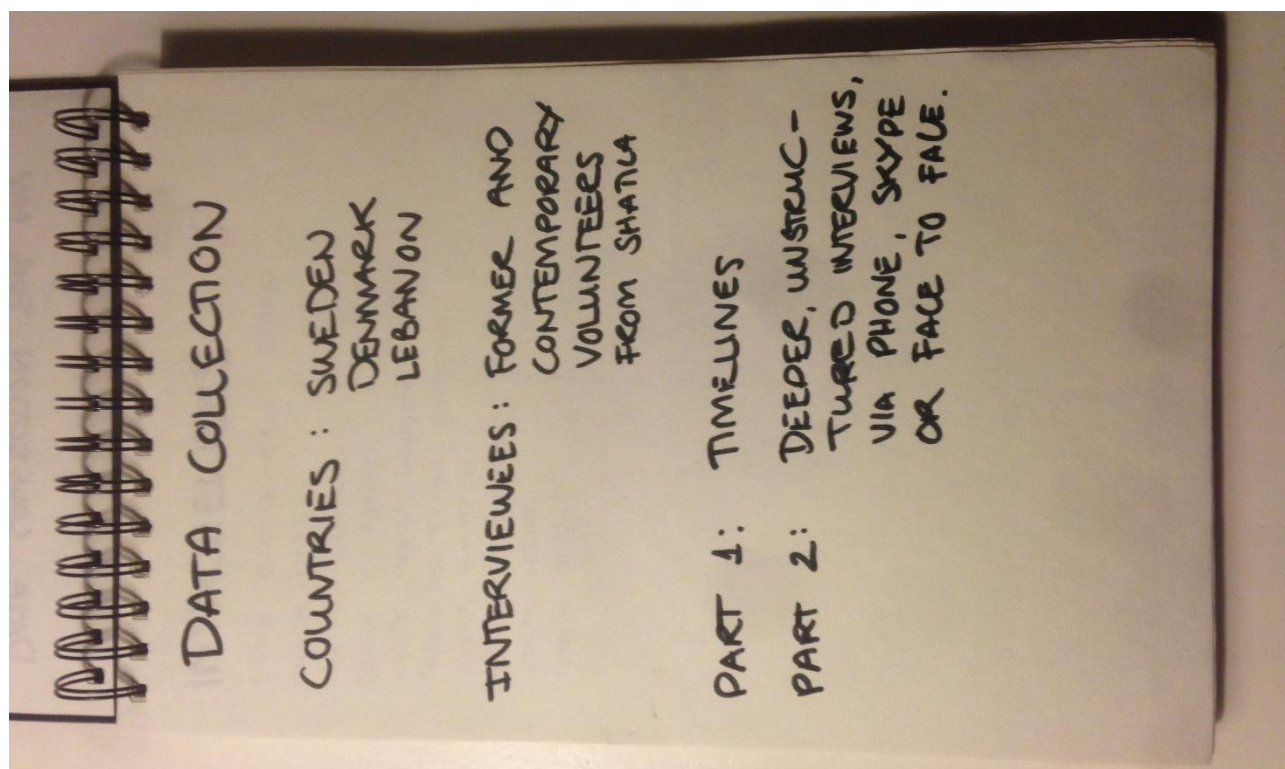 DATA COLLECTION
COUNTRIES: SWEDEN
DENMARK
LEBANON
INTERVIEWEES: FORMER AND
CONTEMPORARY
VOLUNTEERS
FROM SHATILA
PART 1: TIMELINES
PART 2: DEEPER, UNSTRUC-
TURED INTERVIEWS,
VIA PHONE, SKYPE
OR FACE TO FACE.